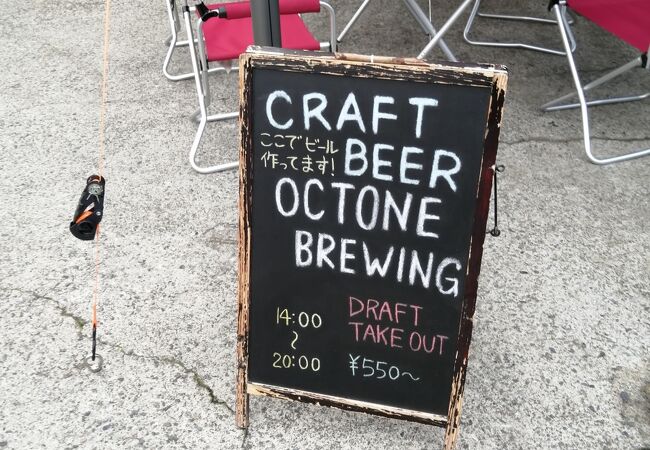 CRAFT
ここでビール
作ってます!
BEER
OCTONE
BREWING
14:00
〜
20:00
DRAFT
TAKE OUT
¥550〜